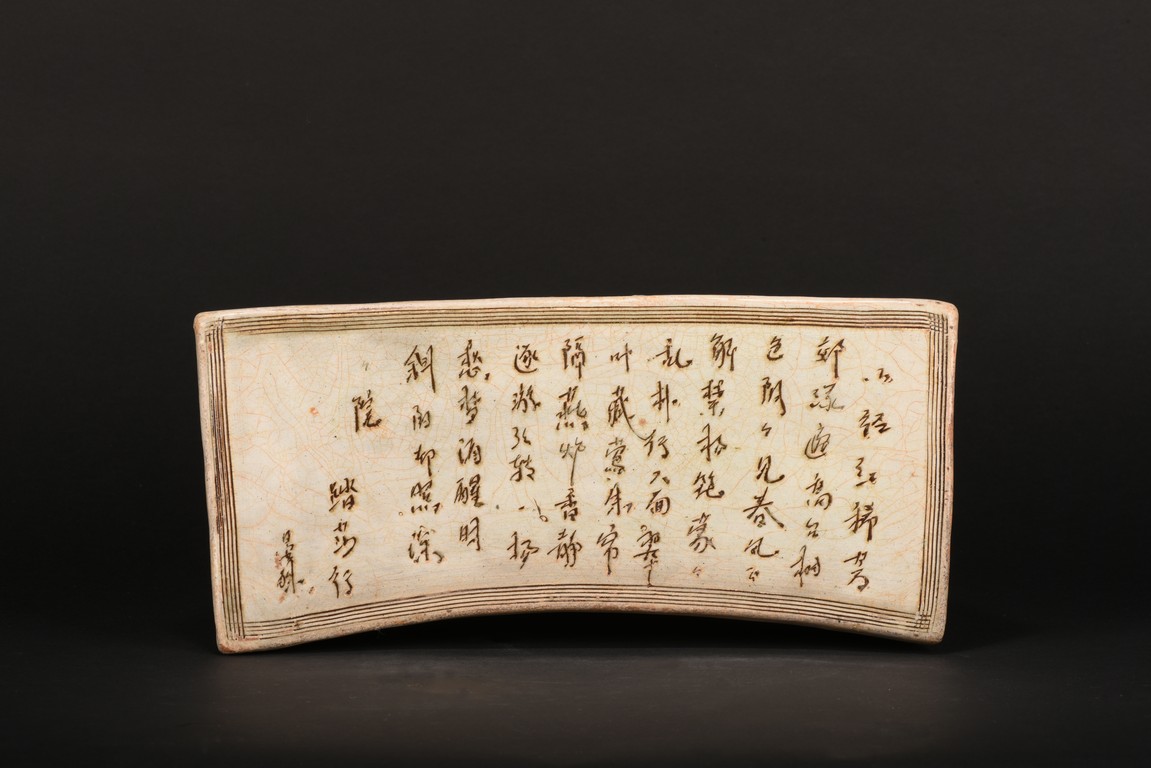 小径红稀芳
郊绿遍高台树
色阴々见春风不
解禁杨花蒙々
乱扑行人面翠
叶藏莺朱帘
隔燕炉香静
逐游丝转一场
愁梦酒醒时
斜阳却照深
々院
踏莎行
晏殊